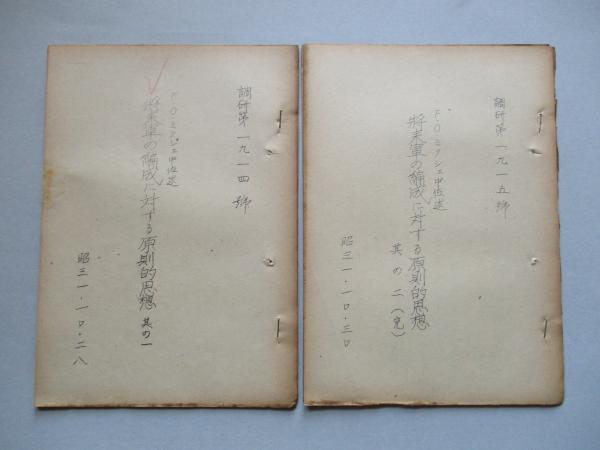 調研第一九一四號
F・O・ミクシェ中佐述
将来軍の編成に対する原則的思想 其の一
昭三一・一〇・二八
調研第一九一五號
F・O・ミクシェ中佐述
将来軍の編成に対する原則的思想
其の二(完)
昭三一・一〇・三〇